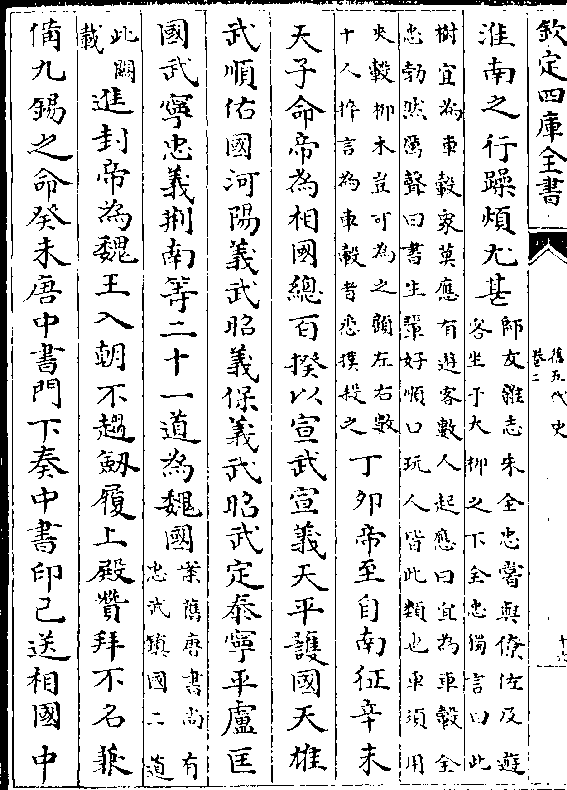 欽定四庫全書
舊五代史
卷二
淮南之行躁煩尤甚
師友雜志朱全忠嘗與僚佐及遊
客坐于大柳之下全忠獨言曰此
樹宜為車轂衆莫應有遊客數人起應曰宜為車轂全
忠勃然厲聲曰書生輩好順口玩人皆此類也車須用
夾轂柳木豈可為之顧左右數
十人捽言為車轂者悉撲殺之
丁卯帝至自南征辛未
天子命帝為相國總百揆以宣武宣義天平護國天雄
武順佑國河陽義武昭義保義武昭武定泰寧平盧匡
國武寧忠義荆南等二十一道為魏國
案舊唐書尚有
忠武鎮國二道
此闕
載
進封帝為魏王入朝不趨劒履上殿贊拜不名兼
備九錫之命癸未唐中書門下奏中書印已送相國中